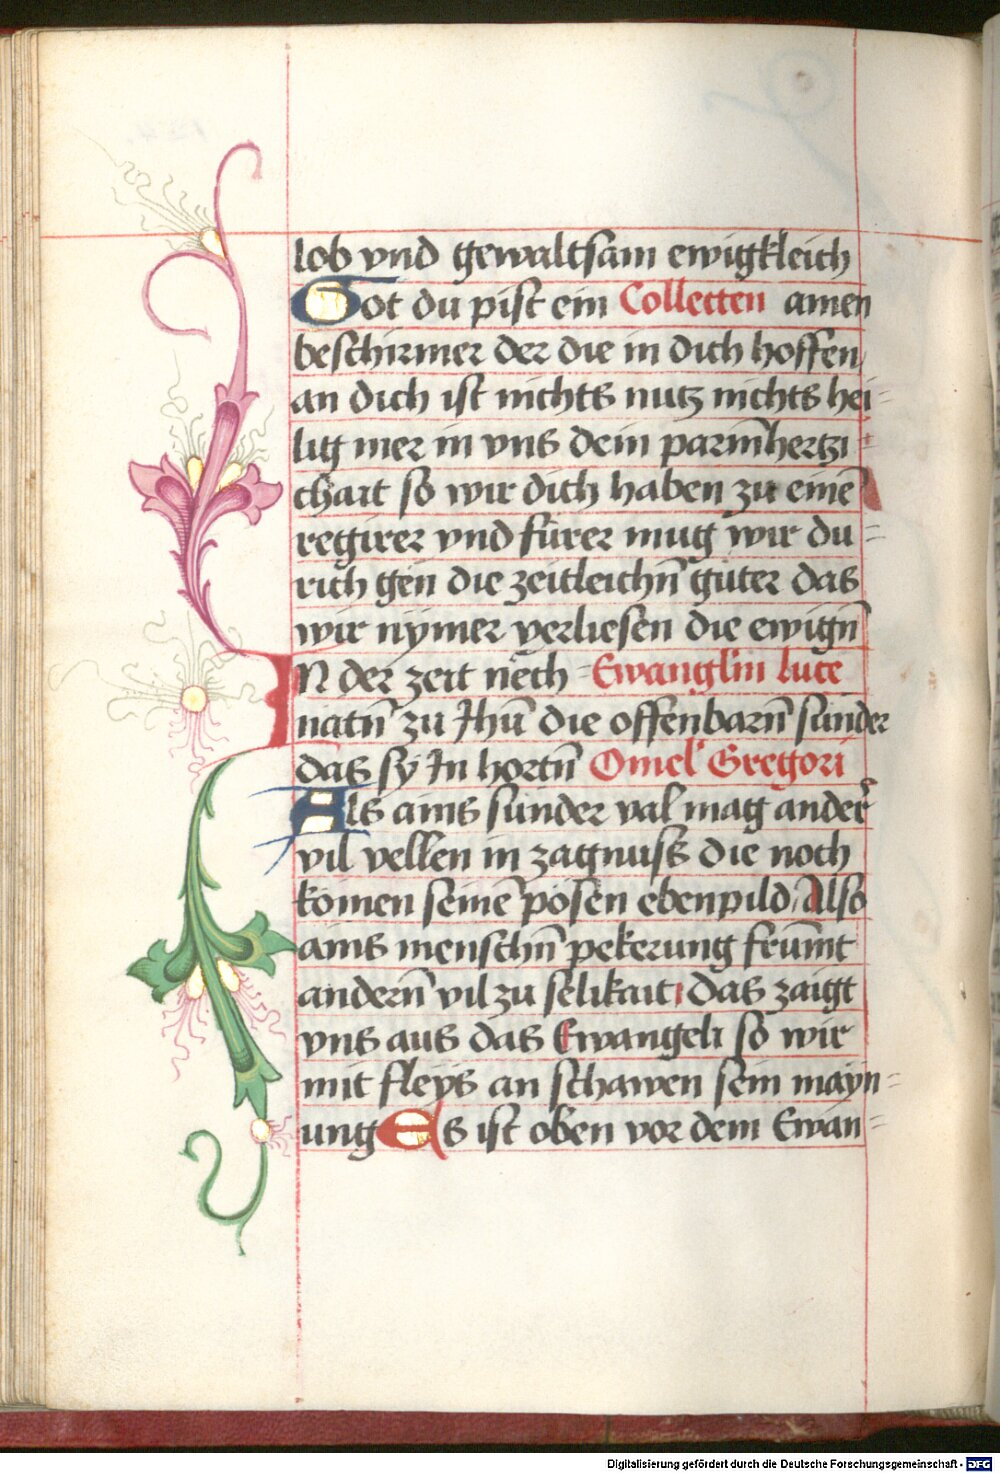 lob vnd gewaltsam ewigkleich
Got du pist ein Collecten amen
beschirmer der die in dich hoffen
an dich ist nichts nutz nichts hei-
lig mer in vns dein parm̄hertzi-
chait so wir dich haben zu einē
regirer vnd fürer mug wir du=
rich gen die zeitleichn̄ güter das
wir nÿmer verliesen die ewign̄
IN der zeit nēch Ewanglīn luce
natn̄ zu Jhū die offenbarn̄ sünder
das sy In hortn̄ Omel' Gregori
Als ains sünder val mag ander
vil vellen in zagnuss die noch
komen seinē pösen ebenpild, Also
ains menschn̄ pekerung frūmt
andern̄ vil zu selikait, das zaigt
vns aus das Ewangeli so wir
mit fleys an schawen sein mayn=
ung Es ist oben vor dem Ewan=
Digitalisierung gefördert durch die Deutsche Forschungsgemeinschaft - DFG